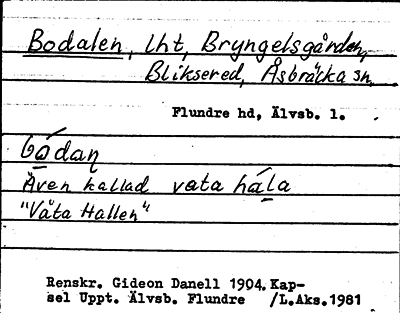 Bodalen, lht, Bryngelsgården,
Bliksered, Åsbräcka sn,
Flundre hd, Älvsb. l.
Även kallad vata hála
"Våta Hallen"
Renskr. Gideon Danell 1904. Kap-
sel Uppt. Älvsb. Flundre /L.Aks.1981